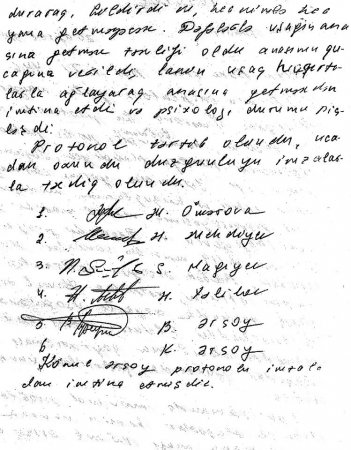 duraraq, bildirdi ki, həç nimsə həç
yana getməyəcək. Dəfələrlə uşağın ana
sına getmək təklifi oldu anasının qu-
cağına verildi, lakin uşaq hıçqırtı-
larla ağlayaraq anasına getməkdən
imtina etdi və psixoloji durumu pis-
ləşdi.
Protokol tərtib olundu, uca-
dan oxundu düzgünlüyü imzalar-
la təsdiq olundu.
1. H. Ömərova
2. H. Mehdiyev
3. S. Nağıyev
4. H.
5. B. Ərsoy
6. K. Ərsoy
Könül Ərsoy protokolu imzala-
dan imtina etmişdir.